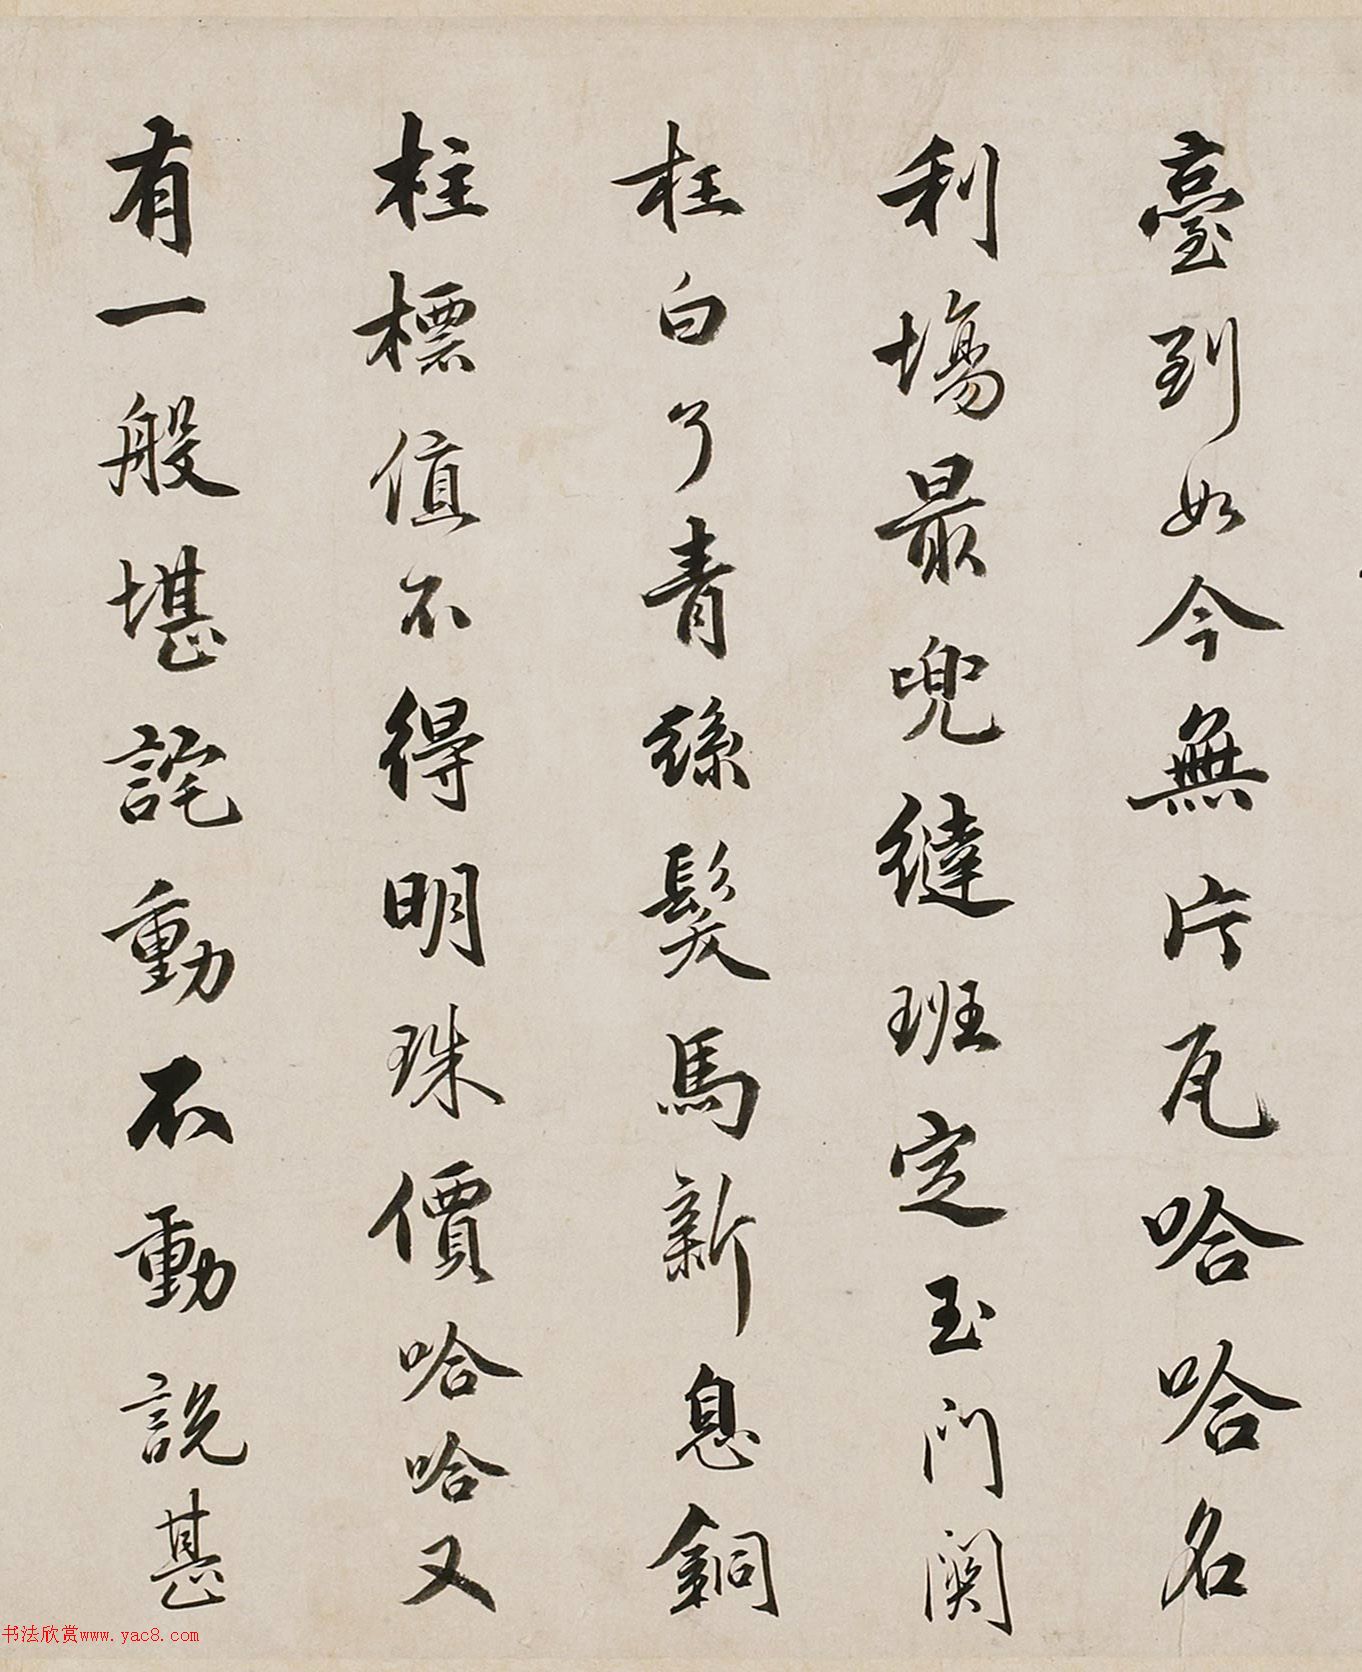 臺到如今無片瓦哈哈名
利場最兜纏班定玉门関
枉白了青絲髮馬新息銅
柱標值不得明珠價哈哈又
有一般堪詫動不動說甚
书法欣赏www.yac8.com